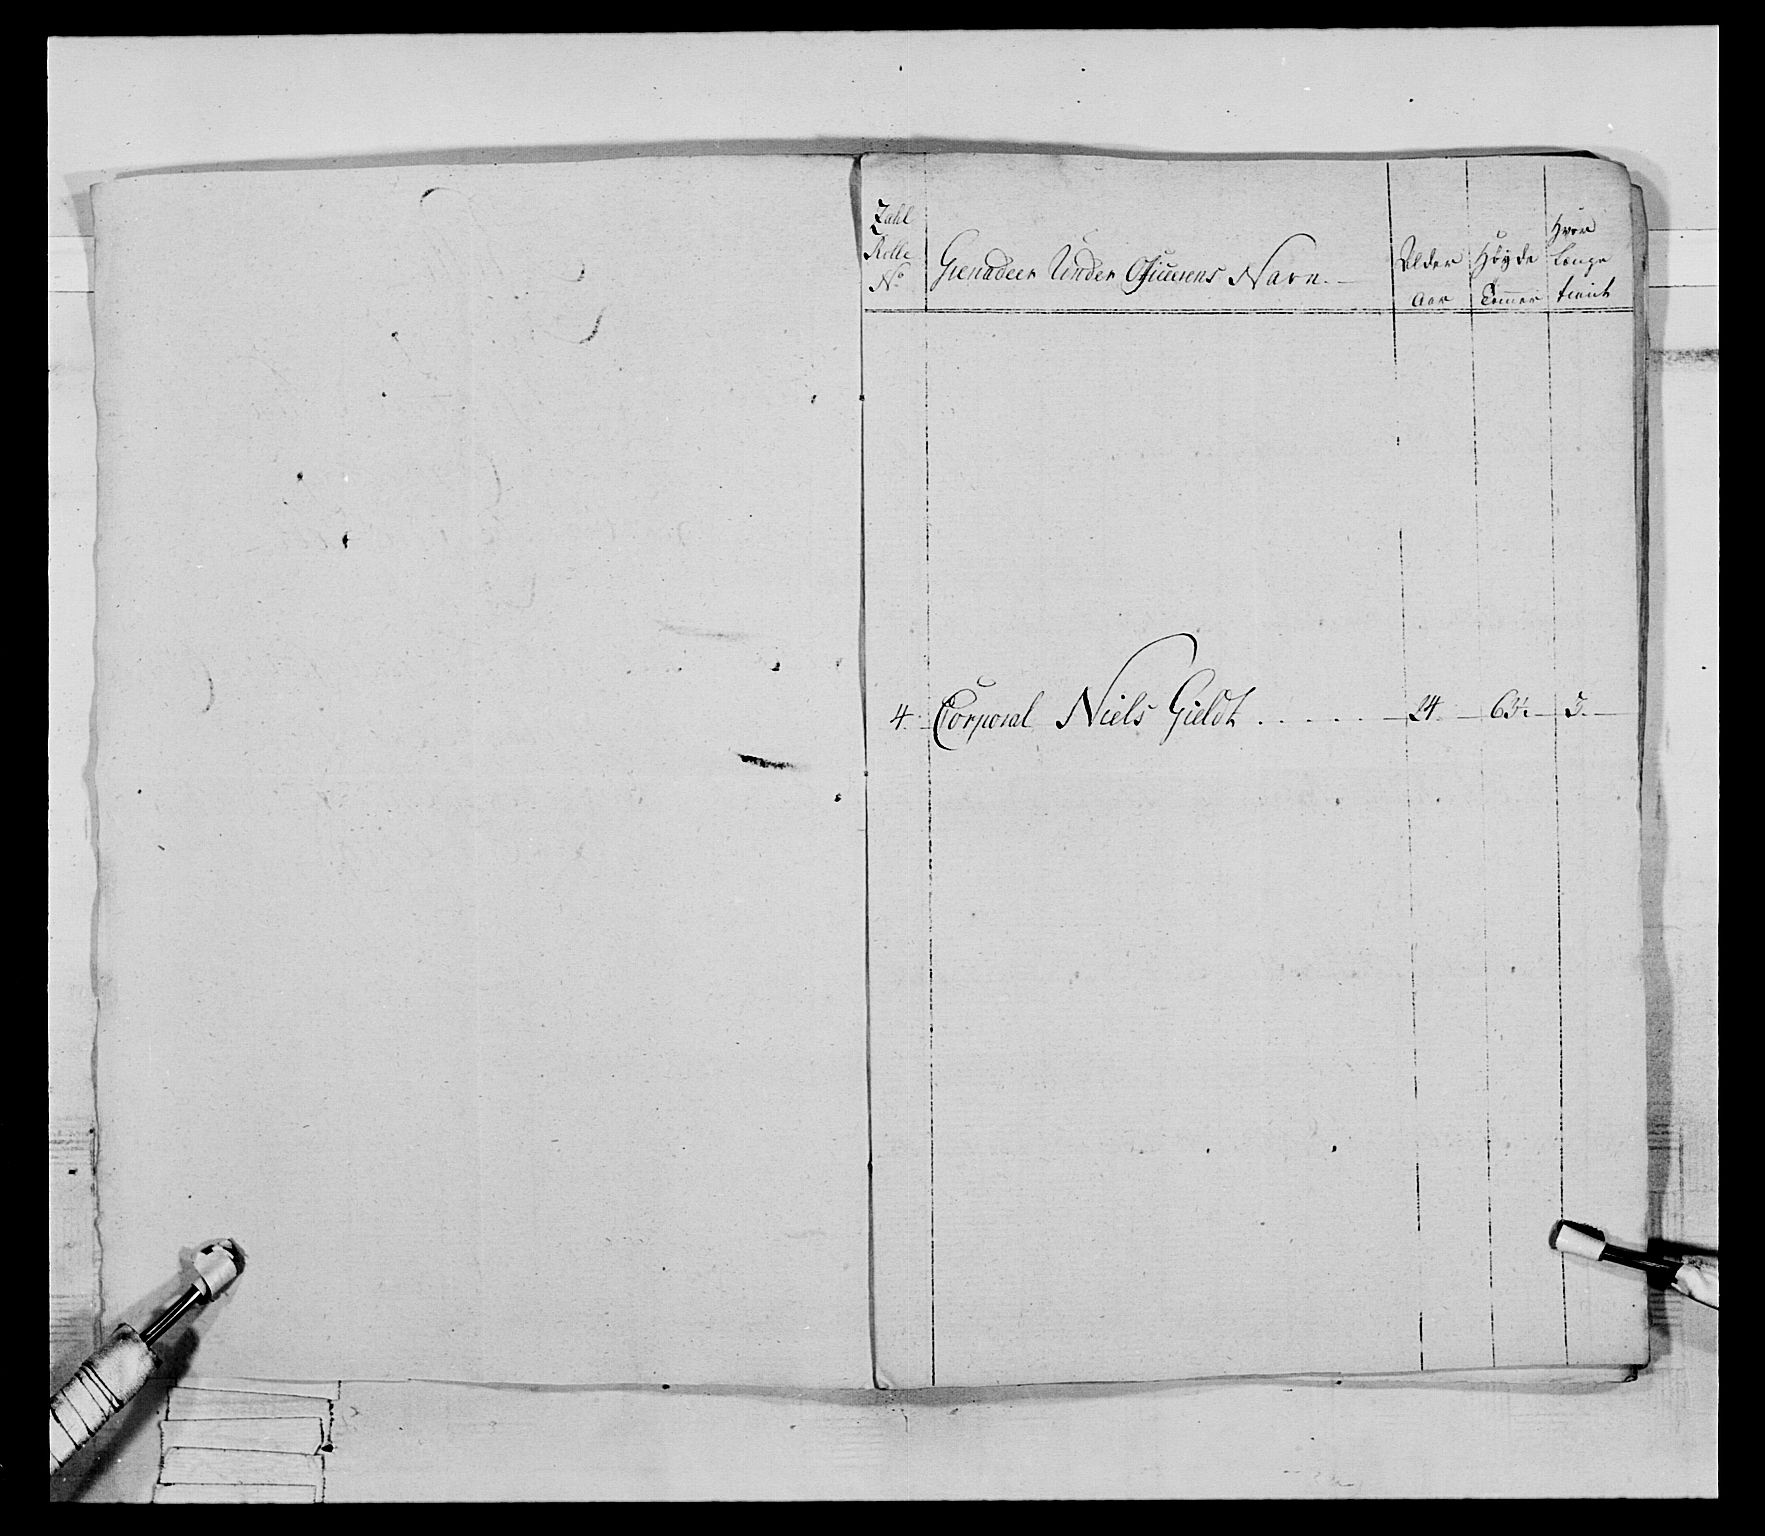 Zahl Rolle No
Grenadeer Under Officerens Navn.
Alder Aar
Høyde Tommer
Hvor Længe tient
4. Corporal Niels Gieldt . . . . . . 24. 63½ 3.